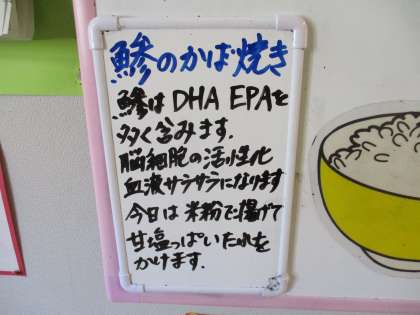 鯵のかば焼き
鯵は DHA EPAを
多く含みます.
脳細胞の活性化
血液サラサラになります
今日は米粉で揚げて
甘塩っぱいたれを
かけます.